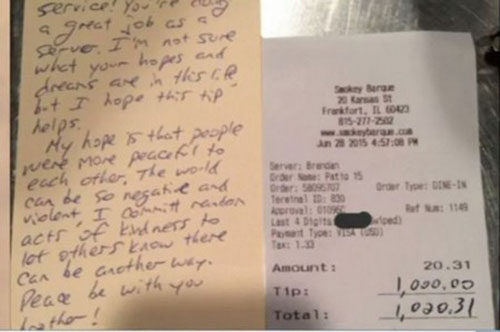 service! You're doing
a great job as a
server. I'm not sure
what your hopes and
dreams are in this life
but I hope this tip
helps.
My hope is that people
were more peaceful to
each other. The world
can be so negative and
violent, I commit random
acts of kindness to
let others know there
can be another way.
Peace be with you
brother!
Smokey Barque
20 Kansas St
Frankfort, IL 60423
815-277-2502
www.smokeybarque.com
Jun 28 2015 4:57:08 PM
Server: Brendan
Order Name: Patio 15
Order: 58095707 Order Type: DINE-IN
Terminal ID: 830
Approval: Ref Num: 1149
Last 4 Digits
Payment Type: VISA (USD)
Tax: 1.33
Amount: 20.31
Tip: 1,000.00
Total: 1,020.31